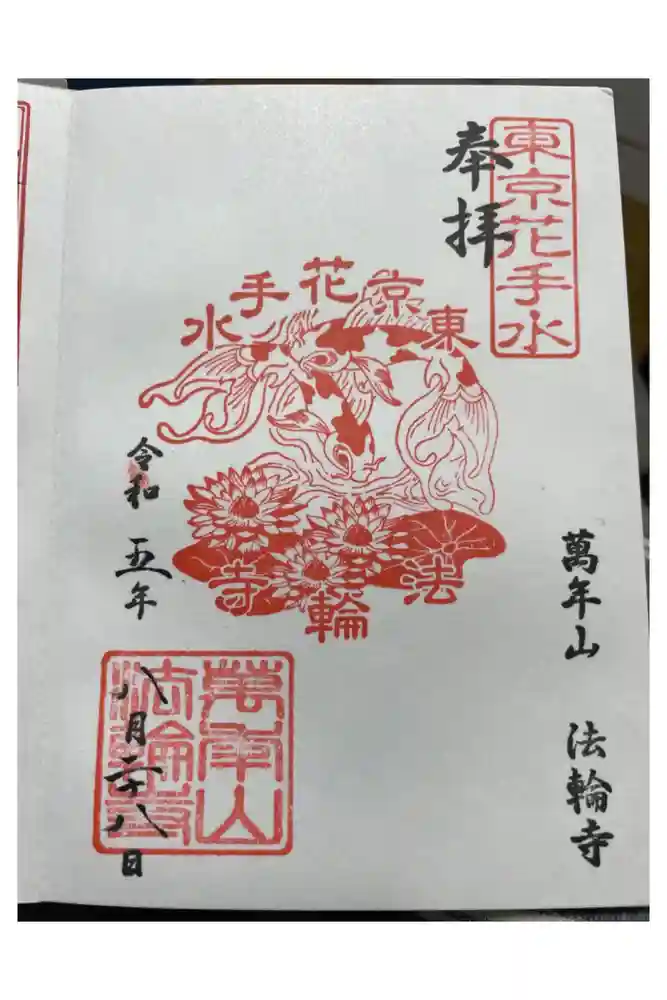 東京花手水
奉拝
萬年山 法輪寺
東京花手水
法輪寺
萬年山
法輪寺
令和五年八月二十八日